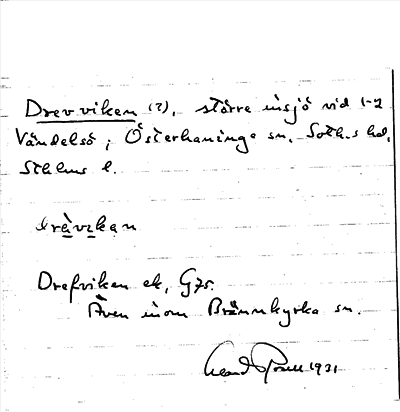 Drevviken (?), större insjö vid 1-2
Vändelsö i Österhaninge sn. Soth.s hd.
Sthlms l.
drèvikan
Drefviken ek, G75.
Även inom Brännkyrka sn.
1931